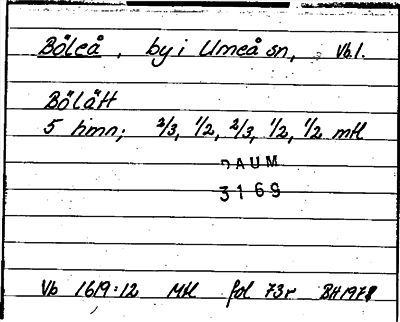 Böleå, by i Umeå sn, Vb l.
Bölätt
5 hmn; 2/3, 1/2, 2/3, 1/2, 1/2 mtl
DAUM
3169
Vb 1619:12 Mtl fol 73r BH 1978